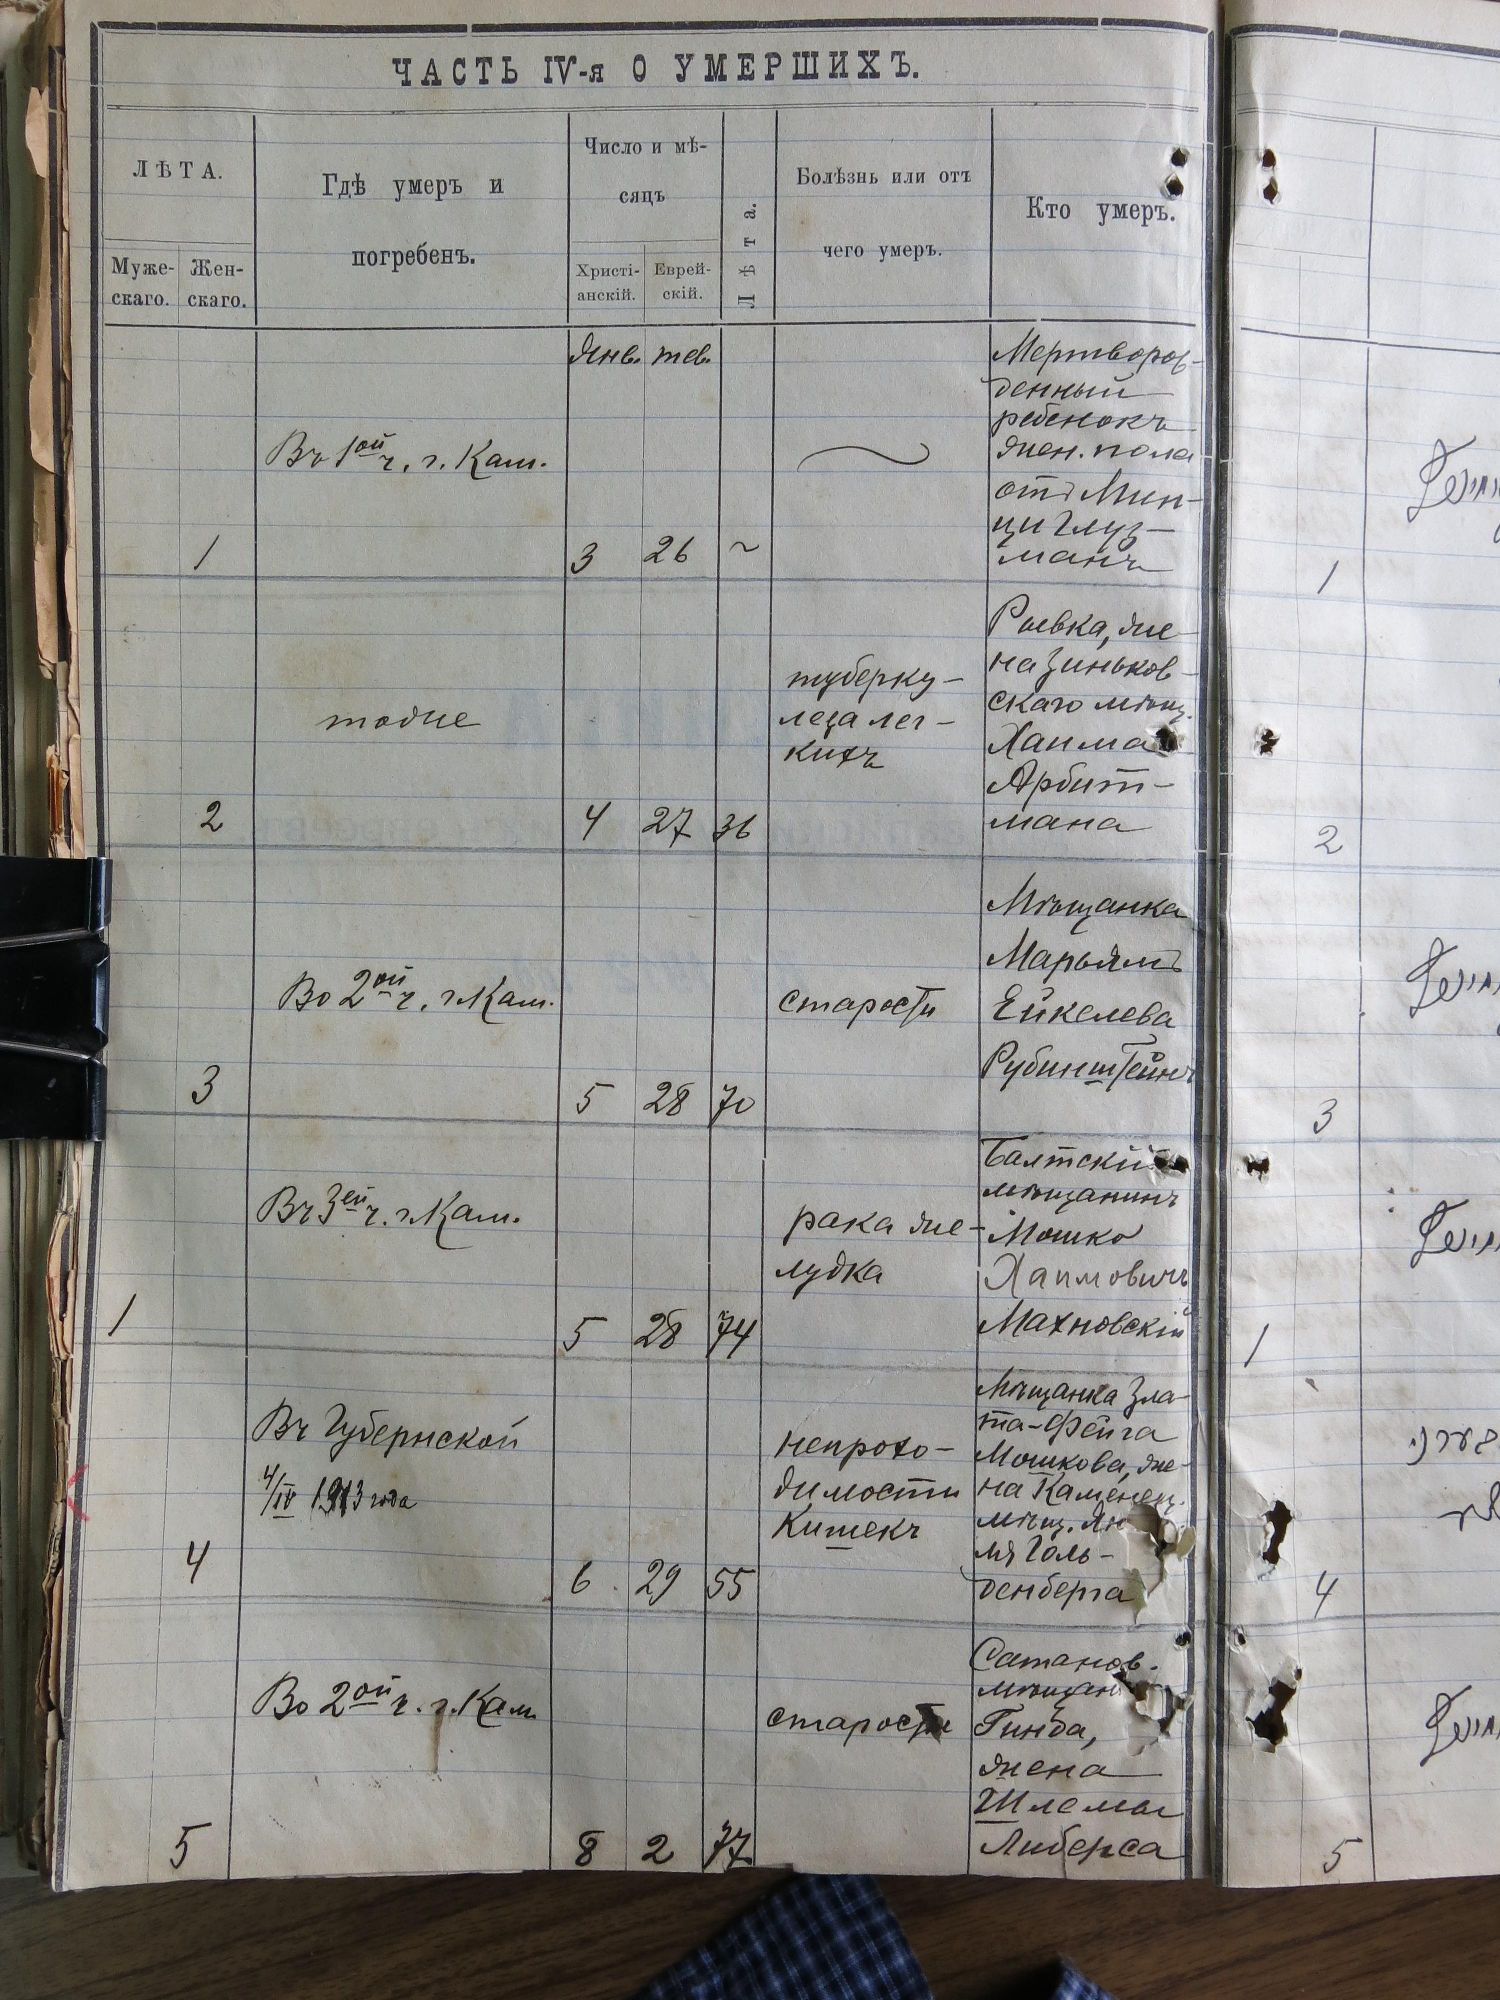 ЧАСТЬ IV-я О УМЕРШИХЪ.
ЛѢТА.
Муже-
скаго.
Жен-
скаго.
Гдѣ умеръ и
погребенъ.
Число и мѣ-
сяцъ
Христі-
анскій.
Еврей-
скій.
Лѣта.
Болѣзнь или отъ
чего умеръ.
Кто умеръ.
Янв. тев.
1
Въ 1ой ч. г. Кам.
3 26 ~
Мертворож-
денный
ребенокъ
жен. пола
отъ Мин-
ци Глуз-
манъ
1
2
тоже
4 27 36
туберку-
леза лег-
кихъ
Рывка, же-
на Зиньков-
скаго мѣщ.
Хаима
Арбит-
мана
2
3
Во 2ой ч. г. Кам.
5 28 70
старости
Мѣщанка
Марьямъ
Ейкелева
Рубинштейнъ
3
1
Въ 3ей ч. г. Кам.
5 28 74
рака же-
лудка
Балтскій
мѣщанинъ
Мошко
Хаимовичъ
Махновскій
1
4
Въ Губернской
4/IV 1913 года
6 29 55
непрохо-
димости
кишекъ
Мѣщанка Зла-
та-Фейга
Мошкова, же-
на Каменец.
мѣщ.
Голь-
денберга
4
5
Во 2ой ч. г. Кам.
8 2 77
старости
Сатанов.
мѣщан
Гинда,
жена
Шлемы
Либерса
5